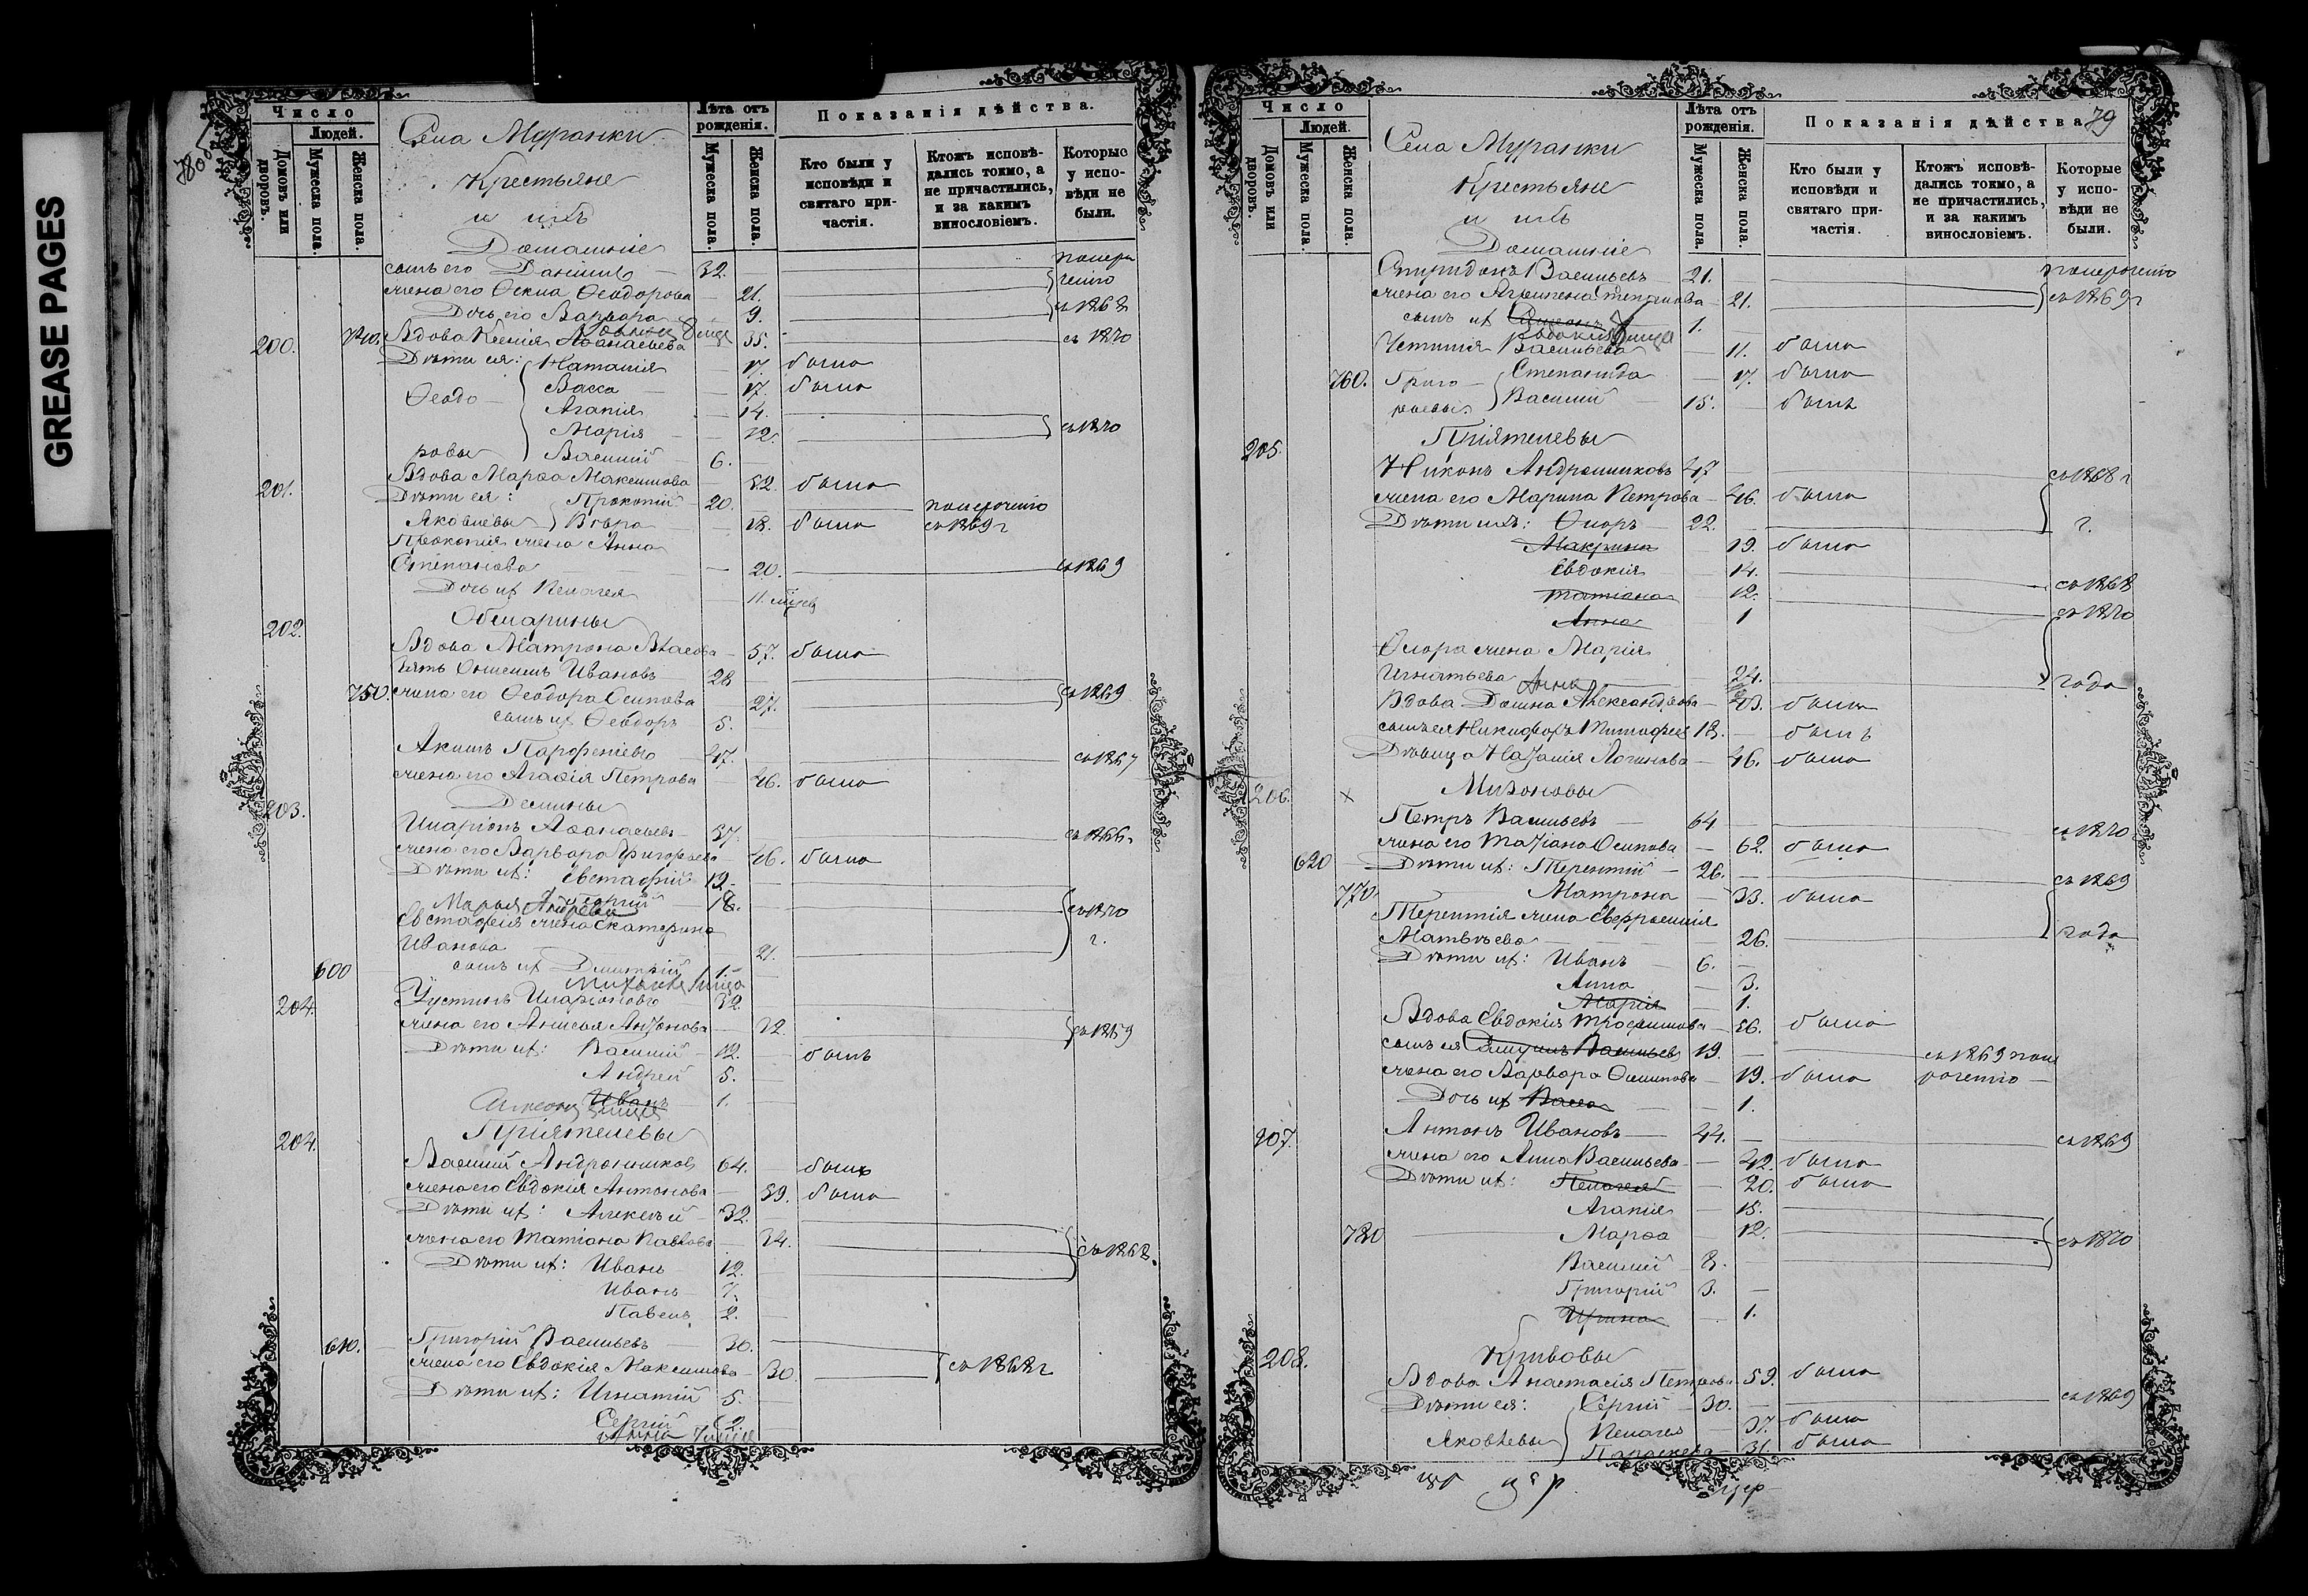 GREASE PAGES
Число
Людей.
Домовъ или дворовъ.
Мужеска пола.
Женска пола.
Села Муранки
Крестьяне
и ихъ
Домашніе
Лѣта отъ рожденія.
Мужеска пола.
Женска пола.
Показанія дѣйства.
Кто были у исповѣди и святаго причастія.
Ктожъ исповѣдались токмо, а не причастились, и за какимъ винословіемъ.
Которые у исповѣди не были.
сынъ его Даніилъ — 32.
жена его Ѳекла Ѳеодорова — 21.
Дочь его Варвара — 9. съ 1868
200. 740. Вдова Ксенія Аѳанасьева 55. съ 1870
Дѣти ея: Наталія — 17. была
Ѳеодо- Васса — 17. была
Агапія — 14.
Марія — 12. съ 1870
ровы Василий 6.
201. Вдова Марѳа Максимова — 52. была
Дѣти ея: Прокопій 20.
Яковлевы Вѣра — 18. была съ 1869 г
Прокопія жена Анна
Степанова — 20. съ 1869
Дочь их Пелагея 11.
202.
Вдова Матрона Власова — 57. была
Зять Онисимъ Ивановъ 28
750. жена его Ѳеодора Осипова 27. съ 1869
сынъ их Ѳеодоръ 5.
Акимъ Парфеніевъ 47. съ 1867
жена его Агафія Петрова 46. была
203. Демины
Иларіонъ Аѳанасьевъ 57. съ 1866
жена его Варвара Григорьева 46. была
Дѣти их: Евстафій 19.
Георгій 18. съ 1870
Марья Андреева
Евстафія жена Екатерина г.
Иванова 21.
600 сынъ их Дмитрій 1.
204. Устинъ Иларіоновъ 32.
жена его Анисья Антонова — съ 1869
Дѣти их: Василий — 12. былъ
Андрей 5.
Иванъ 1.
Симеонъ
204. Пріятелевы
Василий Андрониковъ 64. былъ
жена его Евдокія Антонова 59. была
Дѣти их: Алексѣй 32.
жена его Татіана Павлова 34. съ 1868.
Дѣти их: Иванъ 12.
Иванъ 7.
Павелъ 2.
610. Григорій Васильевъ 30.
жена его Евдокія Максимова 30. съ 1868 г
Дѣти их: Игнатій 5.
Сергій 2.
Анна
79
Число
Людей.
Домовъ или дворовъ.
Мужеска пола.
Женска пола.
Села Муранки
Крестьяне
и ихъ
Домашніе
Лѣта отъ рожденія.
Мужеска пола.
Женска пола.
Показанія дѣйства
Кто были у исповѣди и святаго причастія.
Ктожъ исповѣдались токмо, а не причастились, и за какимъ винословіемъ.
Которые у исповѣди не были.
Спиридонъ Васильевъ 21.
жена его Агрипена Степанова 21. съ 1869 г
сынъ их Симеонъ 1.
Евдокія
Васильева — 11. была
760. Григо- Степанида — 17. была
рьевы Василий 15. былъ
205. Пріятелевы
Никонъ Андрониковъ 47 съ 1868 г
жена его Марина Петрова — 46. была
Дѣти ихъ: Флоръ 22. г.
Макрина 19. была
Евдокія 14. съ 1868
Татіана 12.
Анна 1 съ 1870
Флора жена Марія
Игнатьева 24. года
Анна
Вдова Домна Александрова — 43. была
сынъ ея Никифоръ Тимофеев 18. былъ
Дѣвица Наталія Логинова — 46. была
206. х
Петръ Васильевъ 64 съ 1870
жена его Татіана Осипова — 62. была
620 Дѣти их: Терентій — 26. съ 1869
770. Матрона 33. была
Терентія жена
Матвѣева 26. года
Дѣти их: Иванъ 6.
Анна 3.
Марія 1.
Вдова Евдокія Трофимова — 56. была
сынъ ея Васильев 19. съ 1869
жена его Варвара — 19. была
Дочь их Васса 1.
207. Антонъ Ивановъ 44. съ 1869
жена его Анна Васильева — 42. была
Дѣти их: Пелагея 20. была
Агапія 15.
780 Марѳа 12. съ 1870
Василий 8.
Григорій 3.
Ирина 1.
208. Кривовы
Вдова Анастасія Петрова 59. была
Дѣти ея: Сергій 30. съ 1869
Яковлевы Пелагея 37. была
Параскева 31. была